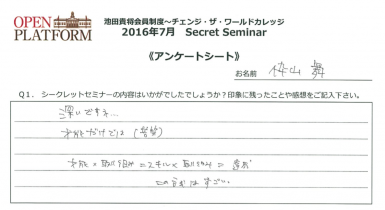 OPEN
PLATFORM
池田貴将会員制度～チェンジ・ザ・ワールドカレッジ
2016年7月 Secret Seminar
《アンケートシート》
お名前 舞
Q1. シークレットセミナーの内容はいかがでしたでしょうか？印象に残ったことや感想をご記入下さい。
深いですネ…
才能だけでは
才能×取り組み＝スキル×取り組み＝
この はすごい